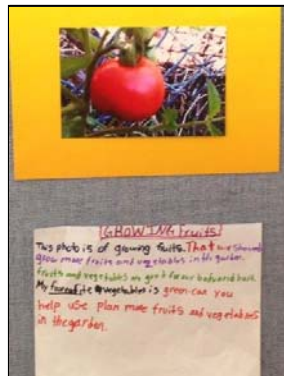 GROWING Fruits
This photo is of growing fruits. That we should
grow more fruits and vegetables in the garden.
fruits and vegetables are good for our body and
My favorite vegetables is green. can you
help use plan more fruits and vegetables
in the garden.